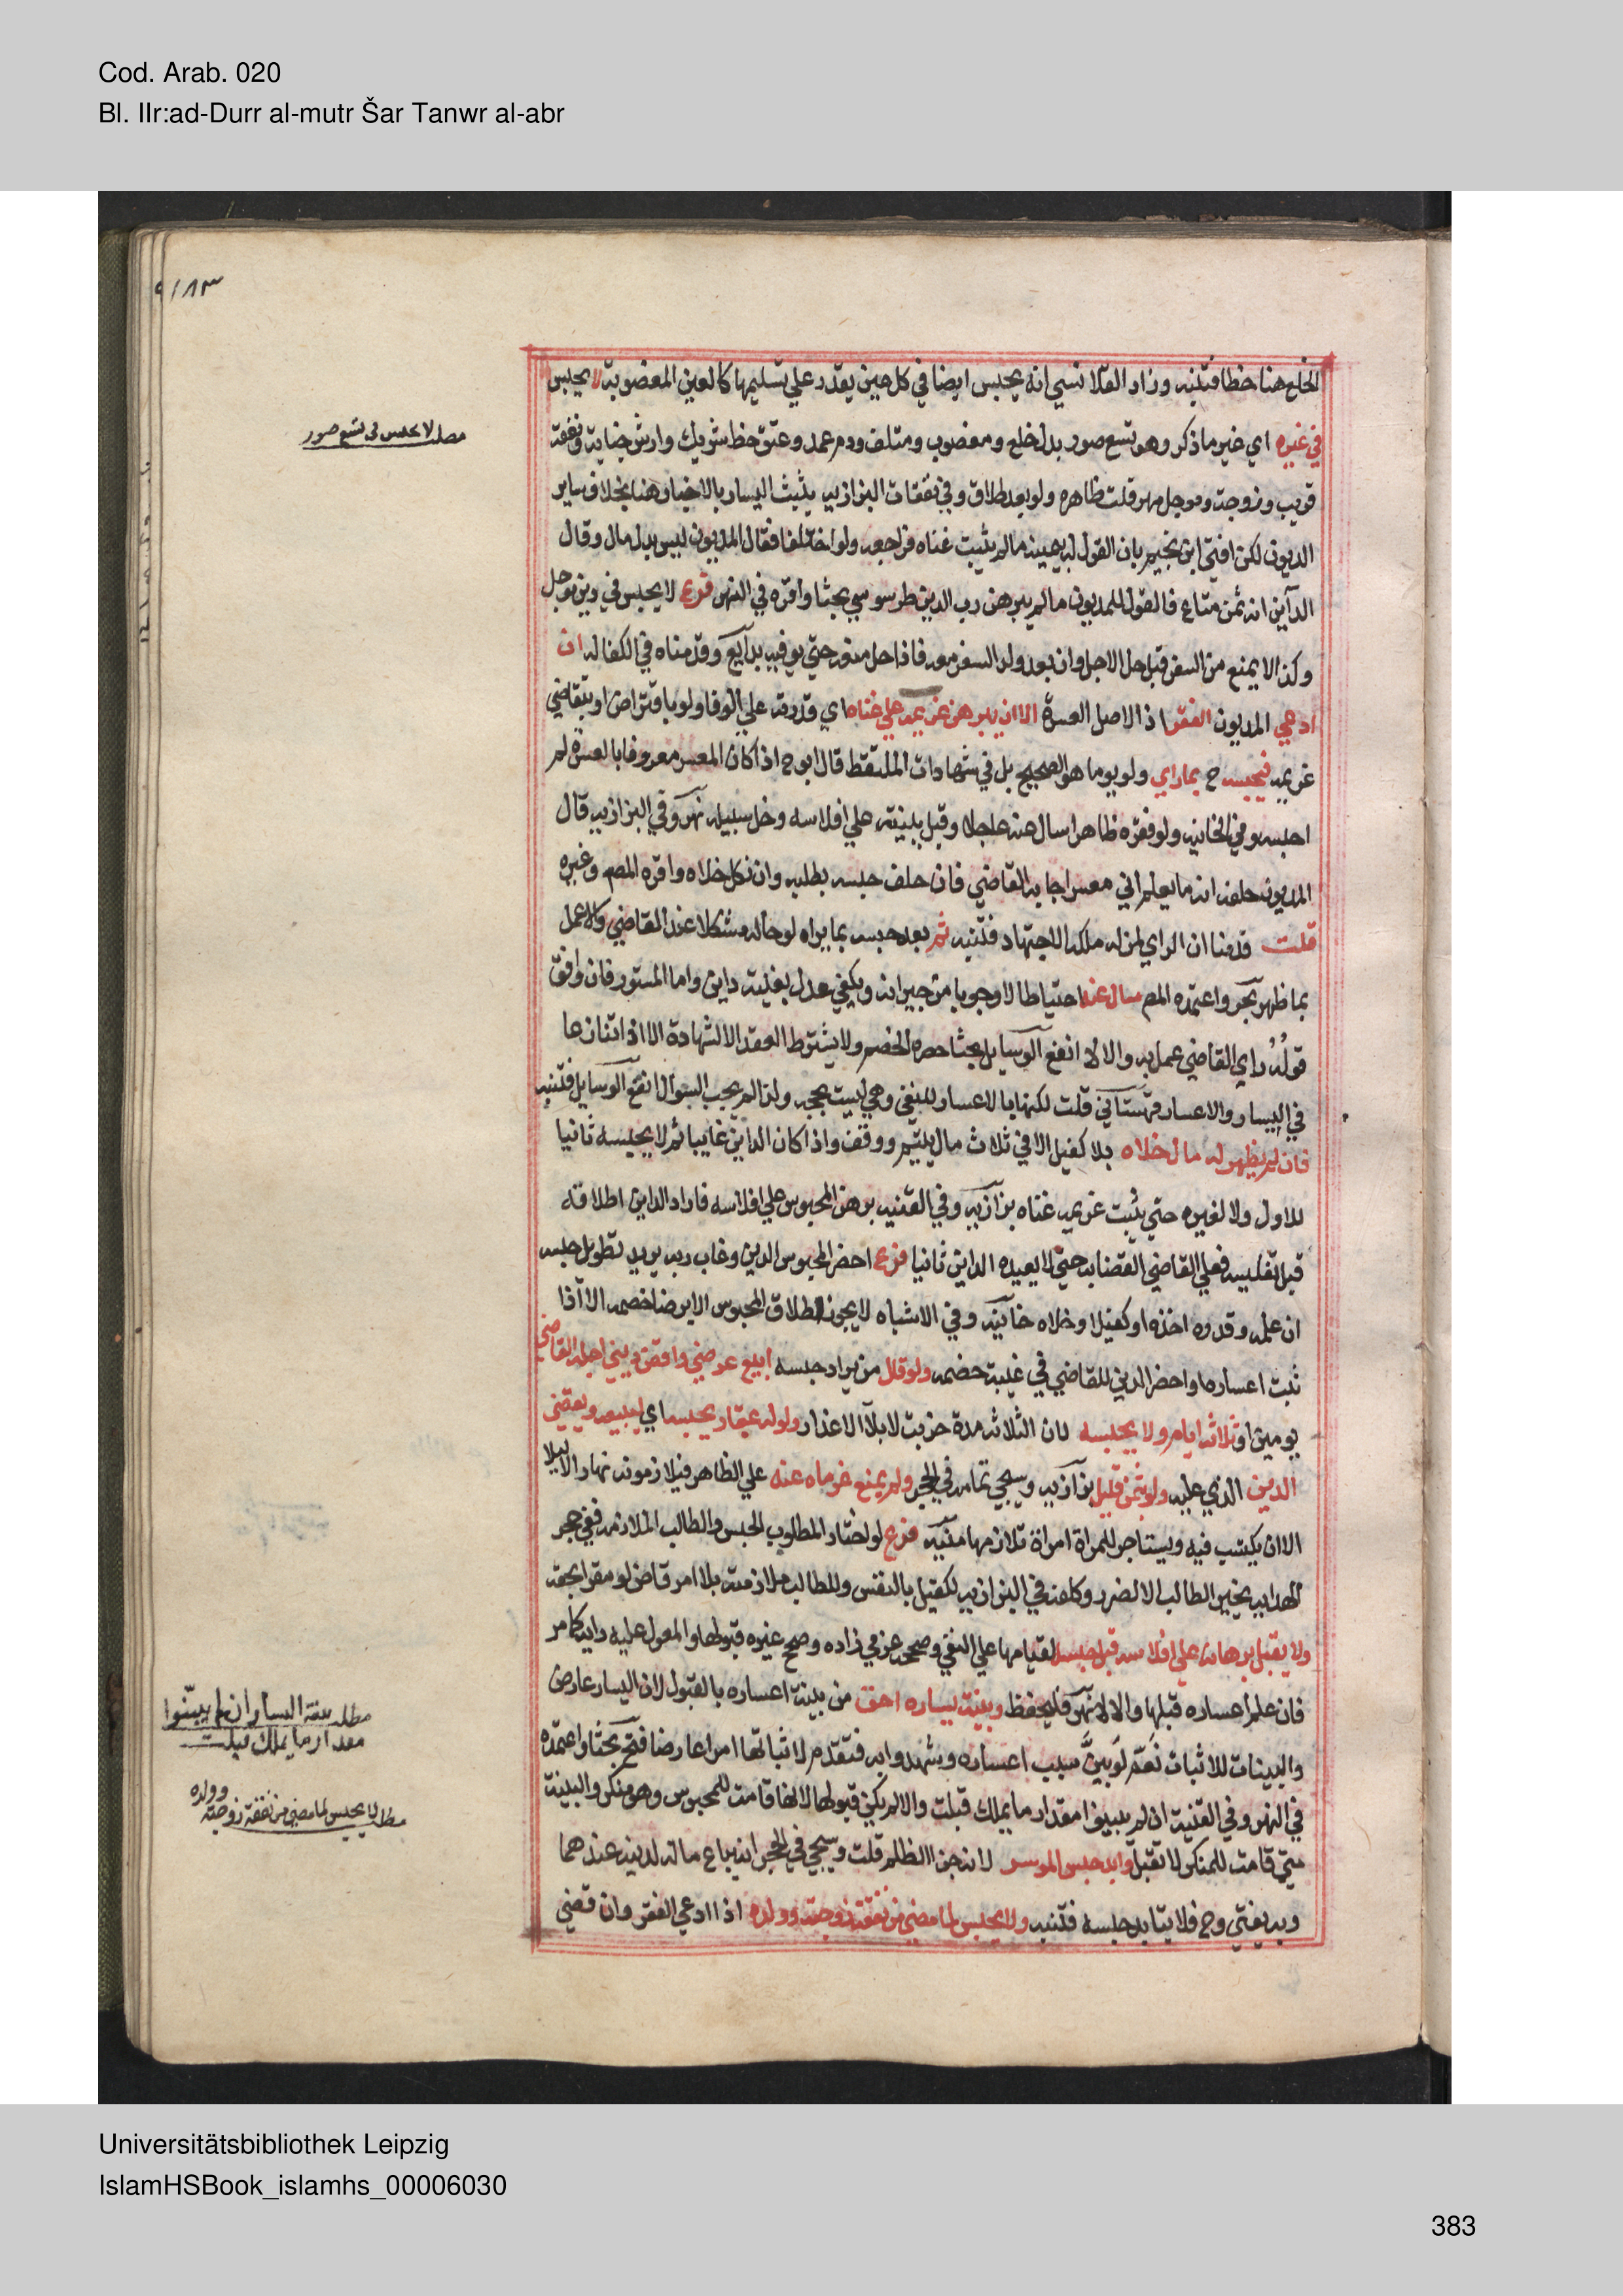 Cod. Arab. 020
Bl. IIr:ad-Durr al-mutr Šar Tanwr al-abr
الخلع هنا خطا فتنبه وزاد القلانسي انه يحبس ايضا في كل عين يقدر علي تسليمها كالعين المغصوبة لا يحبس
في غيره اي غير ما ذكر وهو تسع صور بدل خلع ومغصوب ومتلف ودم عمد وعتق حظ شريك وارش جناية ونفقة
قريب وزوجة وموجل مهر قلت ظاهره ولو بعد طلاق وفي نفقات البزازيه يثبت اليسار بالاخبار هنا بخلاف ساير
الديون لكن افتي ابن نجيم بان القول له بيمينه ما لم يثبت غناه فراجعه ولو اختلفا فقال المديون ليس بدل مال وقال
الداين انه ثمن متاع فالقول للمديون ما لم يبرهن رب الدين طرسوسي بحثا واقره في النهر فرع لا يحبس في دين موجل
وكذا لا يمنع من السفر قبل حل الاجل وان بعد وله السفر معه فاذا حل منعه حتي يوفيه بدايع وقدمناه في الكفاله ان
ادعي المديون الفقر اذ الاصل العسرة الا ان يبرهن غريمه علي غناه اي قدرته علي الوفا ولو باقتراض او بتقاضي
غريمه فيحبسه ح بما راي ولو يوما هو الصحيح بل في شهادات الملتقط قال ابو ح اذا كان المعسر معروفا بالعسرة لم
احبسه وفي الخانيه ولو فقره ظاهرا سال عنه عاجلا وقبل بينته علي افلاسه وخل سبيله نهر وفي البزازيه قال
المديون حلفه انه ما يعلم اني معسر اجابه القاضي فان حلف حبسه بطلبه وان نكل خلاه واقره المص وغيره
قلت قدمنا ان الراي لمن له ملكه الاجتهاد فتنبه ثم بعد حبسه بما يراه لو حاله مشكلا عند القاضي والا عمل
بما ظهر بحر واعتمده المص سال عنه احتياطا لا وجوبا من جيرانه ويكفي عدل بغيبة داين واما المستور فان وافق
قوله راي القاضي عمل به والا لا انفع الوسايل بحثا حضره الخصم ولا يشترط العقد الا لشهادة الا اذا تنازعا
في اليسار والاعسار قهستاني قلت لكنها بالاعسار للنفي وهي ليست بحجه ولذا لم يجب السوال انفع الوسايل فتنبه
فان لم يظهر له مال خلاه بلا كفيل الا في ثلاث مال يتيم ووقف واذا كان الداين غايبا ثم لا يحبسه ثانيا
للاول ولا لغيره حتي يثبت غريمه غناه بزازيه وفي القنيه برهن المحبوس علي افلاسه فاراد الداين اطلاقه
قبل تفليسه فعلي القاضي القضا به حتي لا يعيده الداين ثانيا فرع احضر المحبوس الدين وغاب ربه يريد تطويل حبسه
ان علمه وقدره اخذه او كفيلا وخلاه خانيه وفي الاشباه لا يجوز اطلاق المحبوس الا برضا خصمه الا اذا
ثبت اعساره او احضر الدين للقاضي في غيبة خصمه ولو قال من يراد حبسه ابيع عرضي واقضي ديني اجله القاضي
يومين او ثلاثة ايام ولا يحبسه لان الثلاثه مدة ضربت لابلا الاعذار ولو له عقار يحبسه اي ليبيعه ويقضي
الدين الذي عليه ولو بثمن قليل بزازيه وسيجي تمامه في الحجر ولم يمنع غرماه عنه علي الظاهر فيلازمونه نهارا لا ليلا
الا ان يكتسب فيه ويستاجر للمراة امراة تلازمها منيه فرع لو اختار المطلوب الحبس والطالب الملازمه ففي حجر
الهدايه يخير الطالب الا لضرر وكلفه في البزازيه لكفيل بالنفس وللطالب ملازمته بلا امر قاض لو مقرا بحقه
ولا يقبل برهانه علي افلاسه قبل حبسه لقيامها علي النفي وصححه عزمي زاده وصحح غيره قبولها والمعول عليه رايه كما مر
فان علم اعساره قبلها والا لا نهر فليحفظ وبينة يساره احق من بينة اعساره بالقبول لان اليسار عارض
والبينات للاثبات نعم لو بين سبب اعساره وشهدوا به فتقدم لاثباتها امرا عارضا فتح بحثا واعتمده
في النهر وفي القنية ان لم يبينوا مقدار ما يملك قبلت والا لم يكن قبولها لانها قامت للمحبوس وهو منكر والبينة
متي قامت للمنكر لا تقبل وابد حبس الموسر لانه جزا الظلم قلت وسيجي في الحجر انه يباع ماله لدينه عندهما
وبه يفتي وح فلا يتابد حبسه فتنبه ولا يحبس لما مضي من نفقة زوجته وولده اذا ادعي الفقر وان قضي
مطلب لا يحبس في تسع صور
مطلب بينة اليسار ان لم يبينوا
مقدار ما يملك قبلت
مطلب لا يحبس لما مضي من نفقة زوجته وولده
Universitätsbibliothek Leipzig
IslamHSBook_islamhs_00006030
383